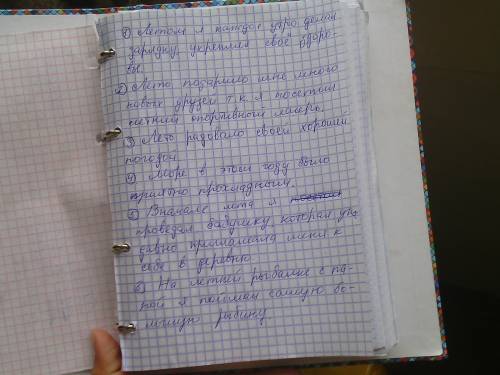 1) Летом я каждое утро делал
зарядку, укреплял своё здоро-
вье.
2) Лето подарило мне много
новых друзей т.к. я посетил
летний спортивный лагерь.
3) Лето радовало своей хорошей
погодой.
4) Море в этом году было
приятно прохладным.
5) Вначале лета я посетил
проведал бабушку, которая уже
давно приглашала меня к
себе в деревню.
6) На летней рыбалке с па-
пой я поймал самую бо-
льшую рыбину